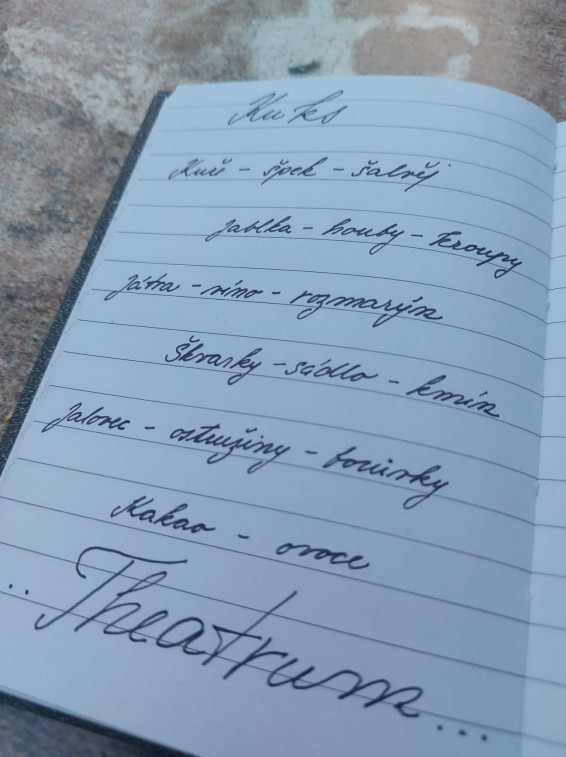 Kuks
Kuře - špek - šalvěj
Jablka - houby - kroupy
Játra - víno - rozmarýn
Škvarky - sádlo - kmín
Jalovec - ostružiny - borůvky
Kakao - ovoce
.. Theatrum...